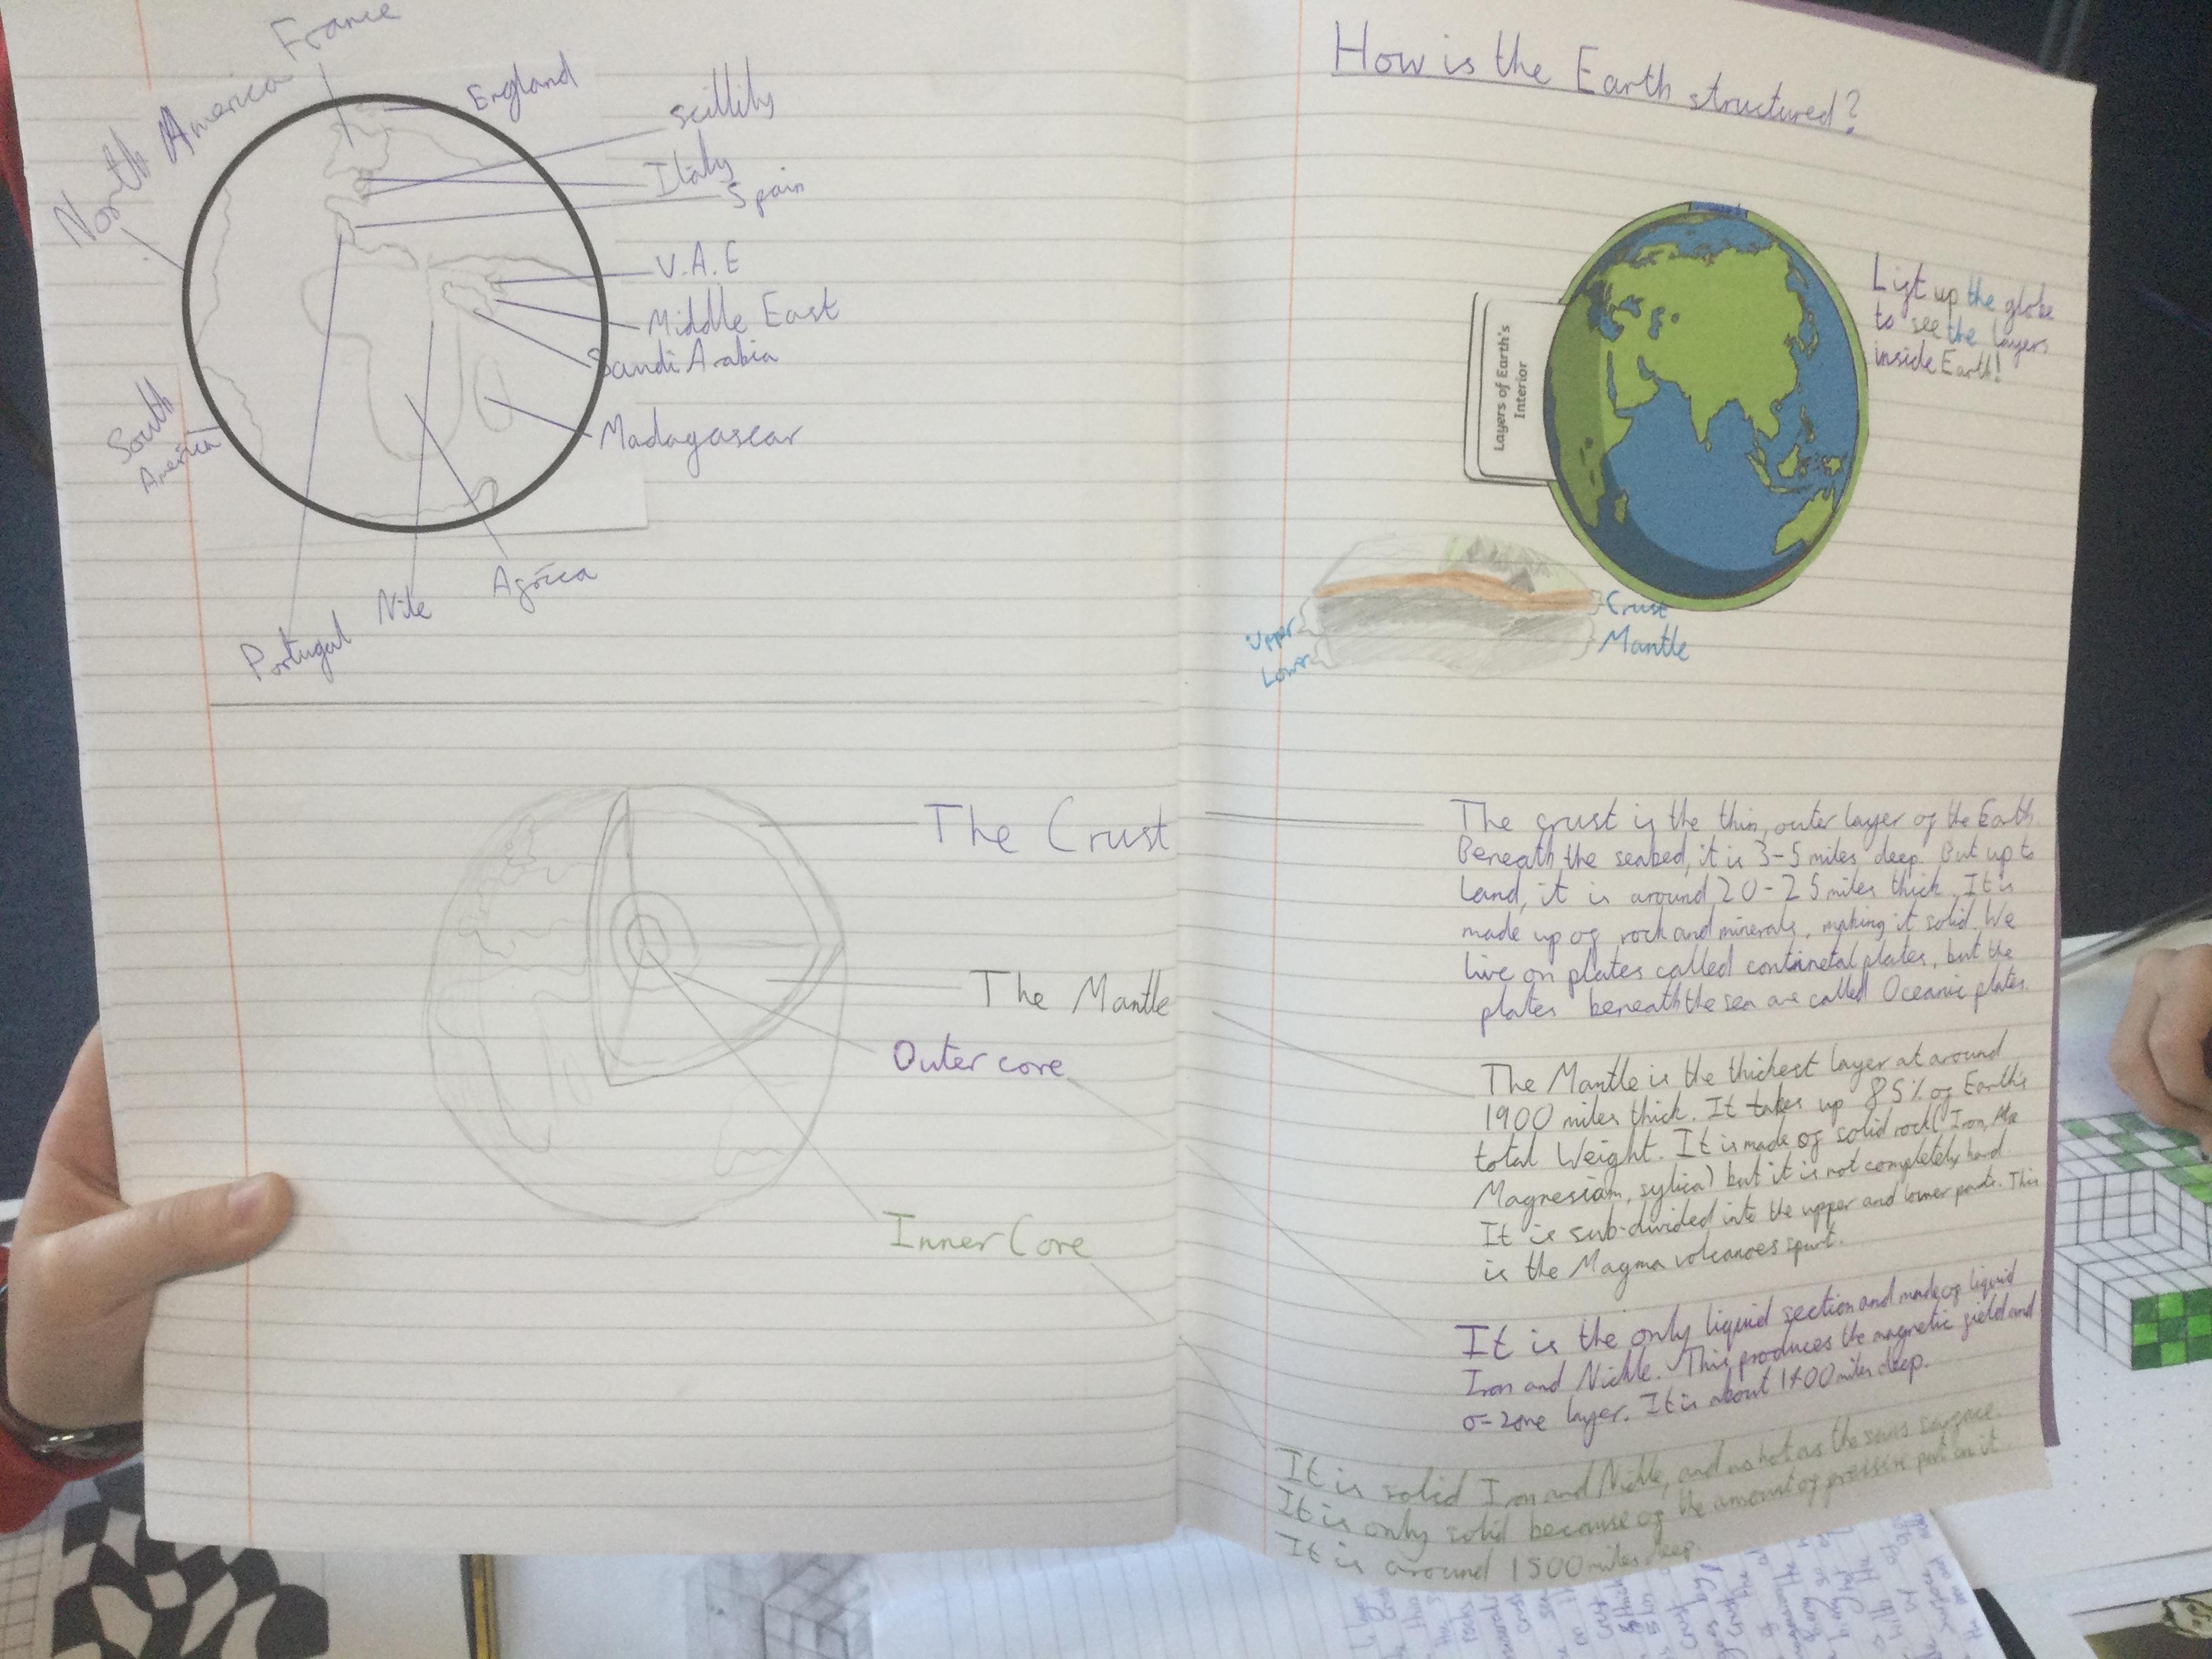 France
North America
England
scillily
Italy
Spain
U.A.E
Middle East
Saudi Arabia
Madagascar
South
America
Africa
Nile
Portugal
The Crust
The Mantle
Outer core
Inner Core
How is the Earth structured?
Layers of Earth's
Interior
Lift up the globe
to see the layers
inside Earth!
Crust
Mantle
Upper
Lower
The crust is the thin, outer layer of the Earth
Beneath the seabed, it is 3-5 miles deep. But up to
Land, it is around 20-25 miles thick. It is
made up of rock and minerals, making it solid. We
live on plates called continetal plates, but the
plates beneath the sea are called Oceanic plates.
The Mantle is the thickest layer at around
1900 miles thick. It takes up 85% of Earth's
total Weight. It is made of solid rock (Iron,
Magnesiam, sylica) but it is not completely hard
It is sub-divided into the upper and lower parts. This
is the Magma volcanoes spurt.
It is the only liquid section and made of liquid
Iron and Nickle. This produces the magnetic field and
o-zone layer. It is about 1400 miles deep.
It is solid Iron and Nickle, and as hot as the suns surface.
It is only solid because of the amount of pressure put on it
It is around 1500 miles deep.